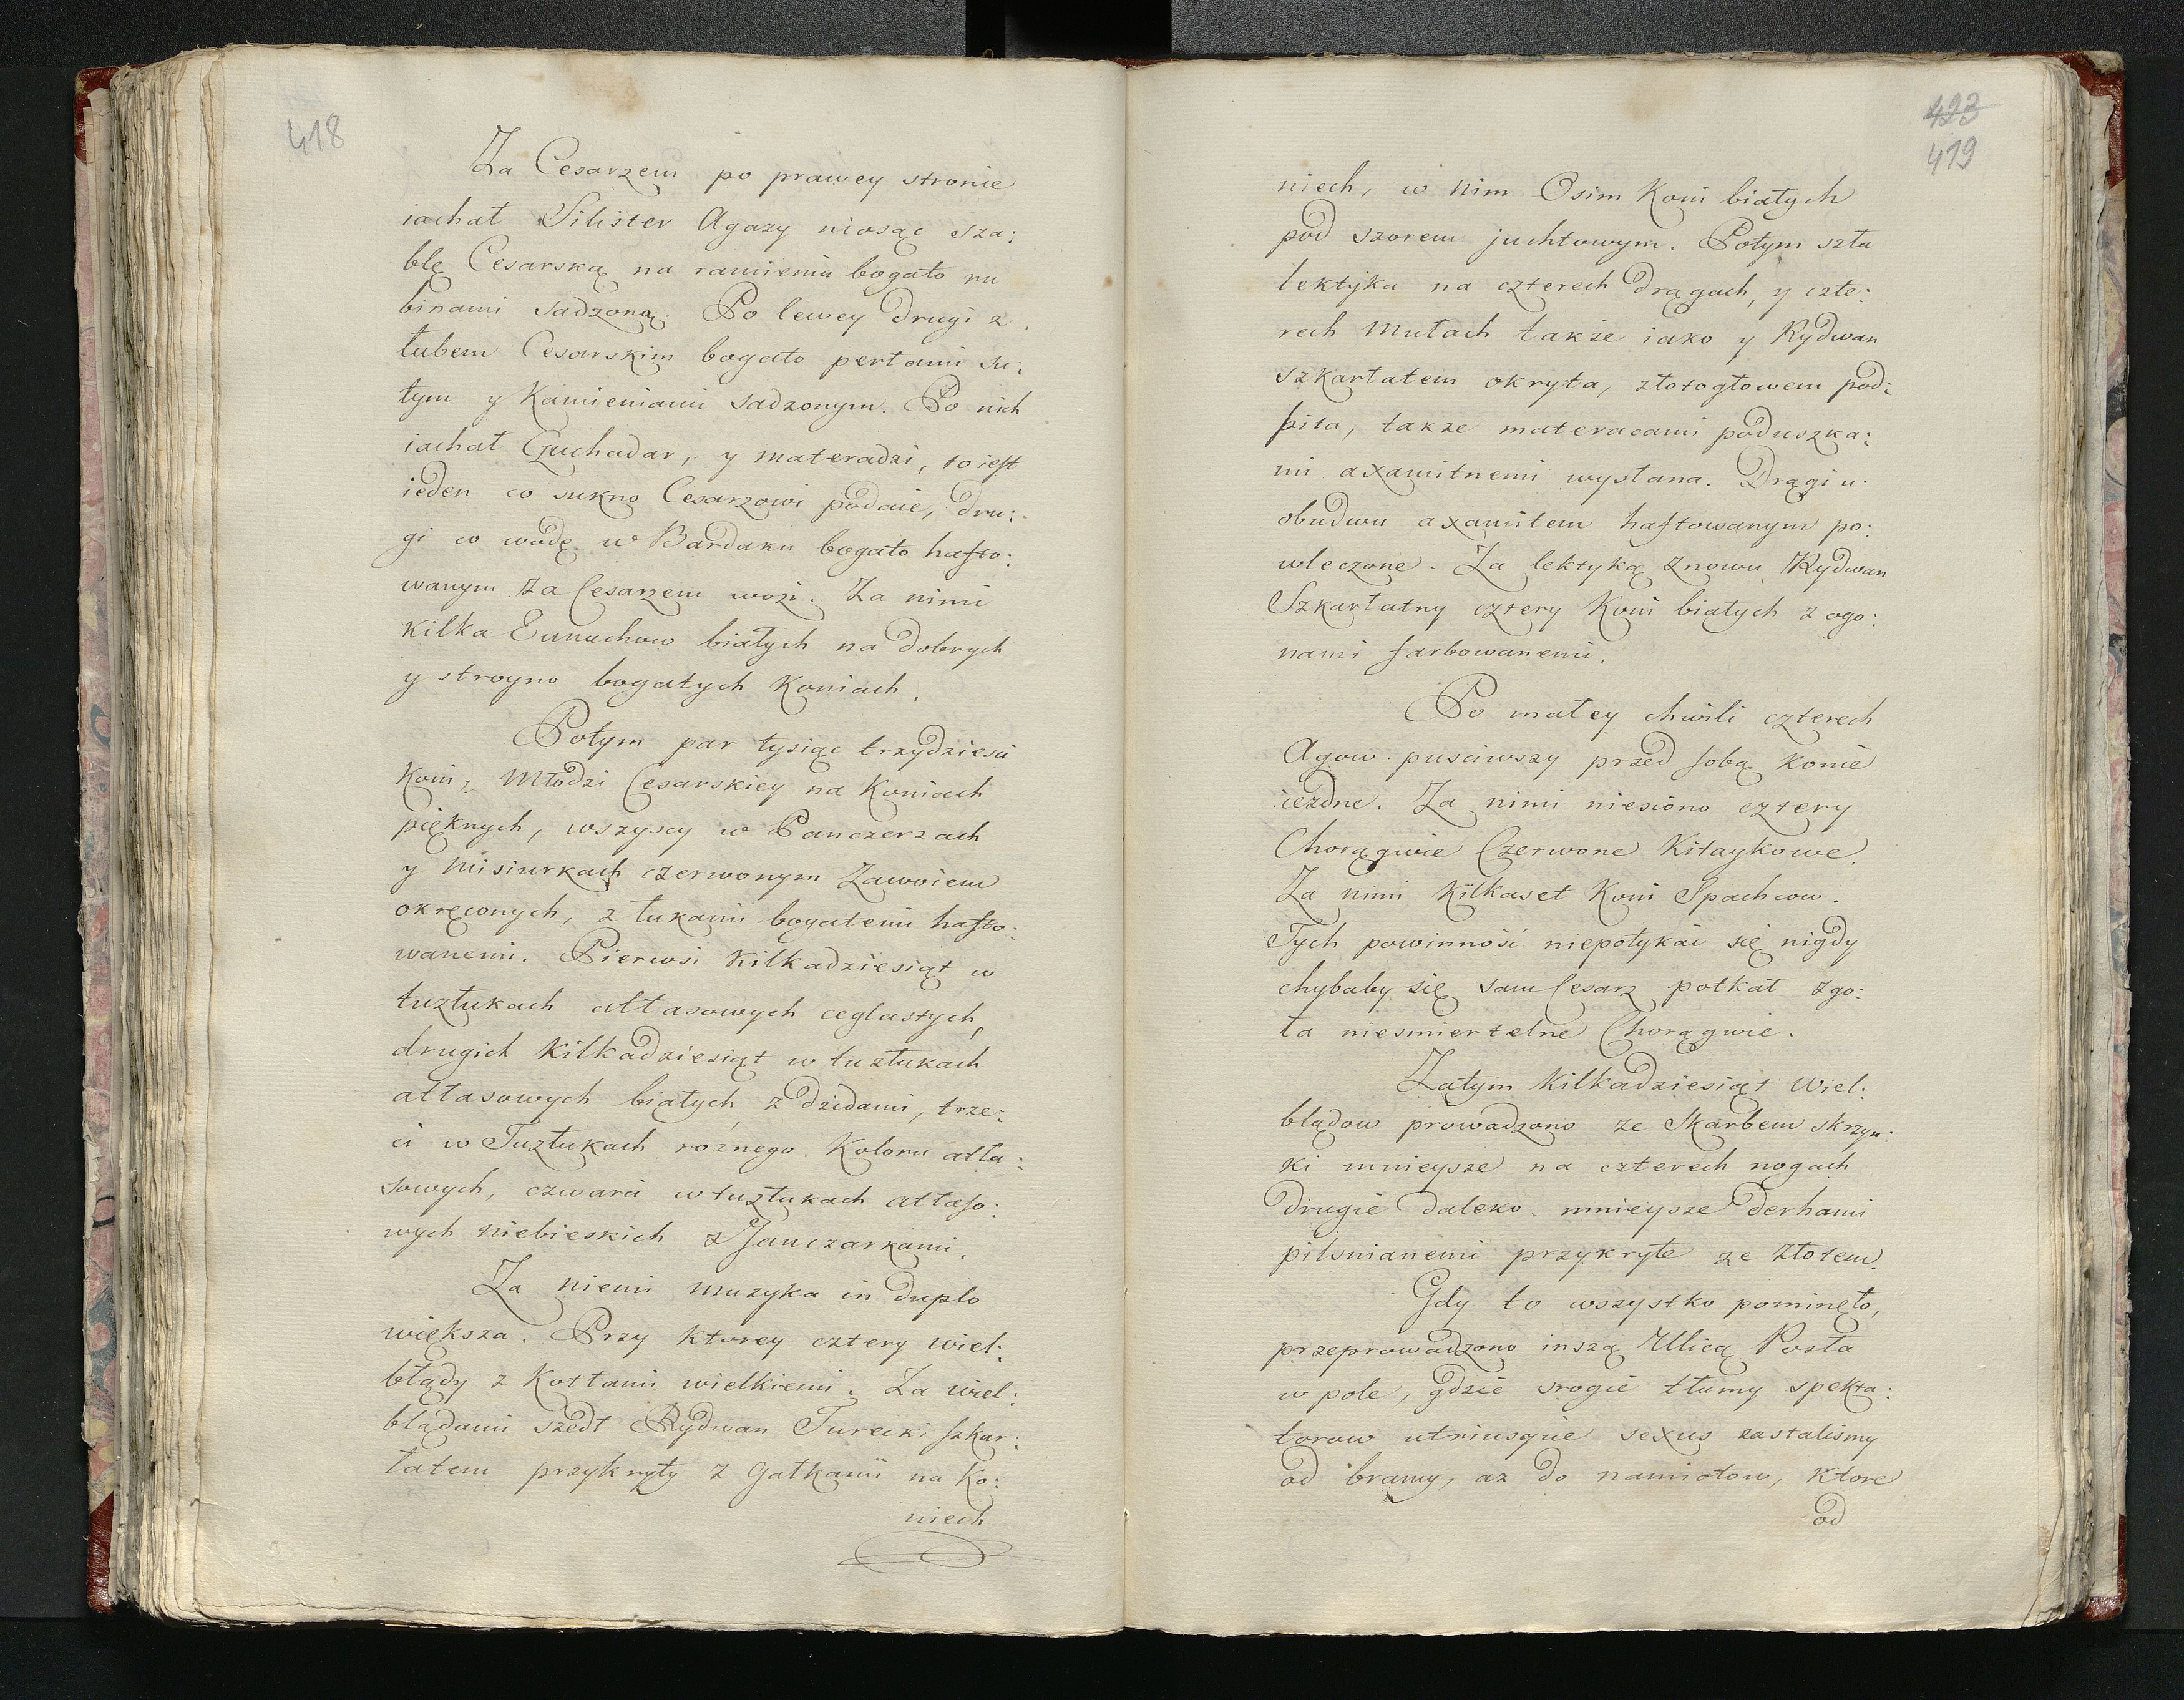 418
Za Cesarzem po prawey stronie
iachał Silister Agazy niosąc sza:
blę Cesarską na ramieniu bogato ru
binami sadzoną. Po lewey drugi z
łubem Cesarskim bogato perłami su:
tym y Kamieniami sadzonym. Po nich
iachał Czuchadar, y materadzi, to iest
ieden co sukno Cesarzowi podaie, dru:
gi co wodę w Bardaku bogato hafto:
wanym za Cesarzem wozi. Za nimi
kilka Eunuchow białych na dobrych
y stroyno bogatych Koniach.
Potym par tysiąc trzydziesci
Koni, Młodzi Cesarskiey na Koniach
pięknych, wszyscy w Panczerzach
y Misiurkach czerwonym Zawoiem
okręconych, z łukami bogatemi hafto:
wanemi. Pierwsi kilkadziesiąt w
tuztukach atłasowych ceglastych,
drugich kilkadziesiąt w tuztukach
atłasowych białych z dzidami, trze:
ci w Tuztukach roznego Koloru atła:
sowych, czwarci w tuztukach atłaso:
wych niebieskich z Janczarkami.
Za niemi muzyka in duplo
większa. Przy ktorey cztery wiel:
błądy z Kotłami wielkiemi. Za wiel:
błądami szedł Rydwan Turecki szkar:
łatem przykryty z Gałkami na Ko:
niech
423
419
niech, w nim Osim Koni białych
pod szorem juchtowym. Potym szła
lektyka na czterech drągach, y czte:
rech Mułach także iako y Rydwan
szkarłatem okryta, złotogłowem pod:
szita, takze materacami poduszka:
mi axamitnemi wysłana. Drągi u
obudwu axamitem haftowanym po:
wleczone. Za lektyką znowu Rydwan
Szkarłatny cztery Koni białych z ogo:
nami farbowanemi.
Po małey chwili czterech
Agow pusciwszy przed sobą konie
iezdne. Za nimi niesiono cztery
Chorągwie Czerwone Kitaykowe.
Za nimi kilkaset Koni Spachcow.
Tych powinność niepotykać się nigdy
chybaby się sam Cesarz potkał zgo:
ła niesmiertelne Chorągwie.
Zatym kilkadziesiąt Wiel:
błądow prowadzono ze Skarbem skrzyn:
ki mnieysze na czterech nogach
drugie daleko mnieysze derhami
pilsnianemi przykryte ze Złotem.
Gdy to wszystko pominęło,
przeprowadzono inszą Ulicą Posła
w pole, gdzie srogie tłumy spekta:
torow utriusque sexus zastalismy
od bramy, az do namiotow, ktore
od